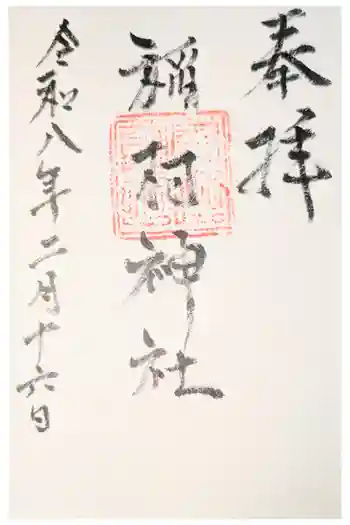 奉拝
稲荷神社
令和八年二月十六日